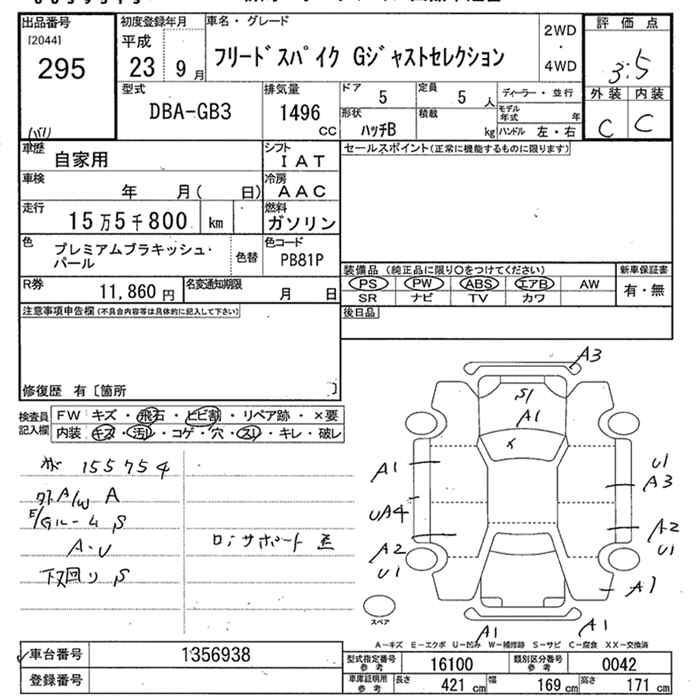 出品番号
[2044]
295
初度登録年月
平成
23 9月
車名・グレード
フリードスパイク Gジャストセレクション
2WD
・
4WD
評価点
3.5
外装 内装
C C
型式
DBA-GB3
排気量
1496
CC
ドア
5
定員
5 人
ディーラー・並行
形状
ハッチB
積載
kg
モデル年式 年
ハンドル 左・右
車歴
自家用
シフト
IAT
セールスポイント(正常に機能するものに限ります)
車検
年 月( 日)
冷房
AAC
走行
15万5千800 km
燃料
ガソリン
色
プレミアムブラキッシュ・
パール
色替
色コード
PB81P
装備品(純正品に限り○をつけてください)
新車保証書
PS PW ABS エアB AW
有・無
SR ナビ TV カワ
R券
11,860円
名変通知期限
月 日
後日品
注意事項申告欄(不具合内容等は具体的に記入して下さい)
修復歴 有〔箇所 〕
検査員
記入欄
FW キズ・飛石・ヒビ割・リペア跡・×要
内装 キズ・汚レ・コゲ・穴・スレ・キレ・破レ
155754
A/W A
E/Gルーム S
A・U
下回り S
サポート
A3
S1
A1
A1
U1
A3
UA4
A2
U1
A2
U1
A1
A1
A1
スペア
A-キズ E-エクボ U-凹み W-補修跡 S-サビ C-腐食 XX-交換済
車台番号
1356938
登録番号
型式指定番号
参考
16100
類別区分番号
参考
0042
車庫証明用
参考
長さ 421 cm
幅 169 cm
高さ 171 cm